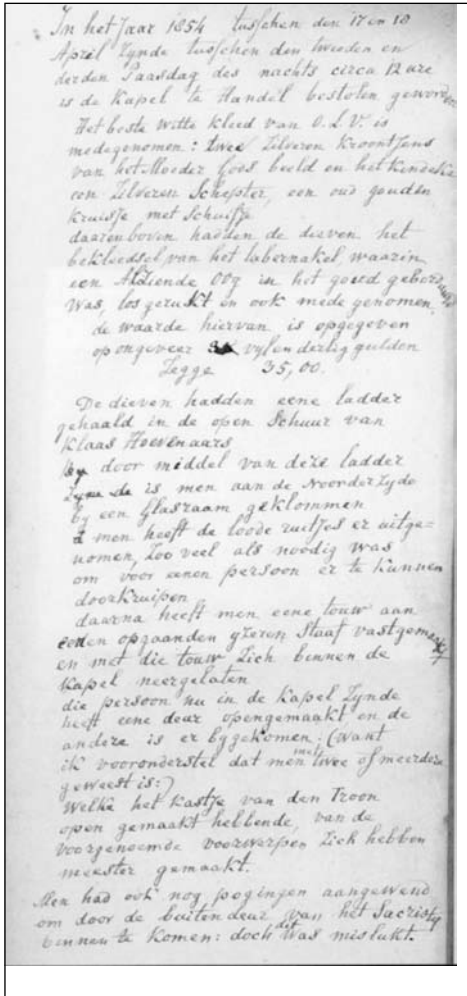 In het Jaar 1854 tusschen den 17 en 18
April Zynde tusschen den tweeden en
derden Paasdag des nachts circa 12 ure
is de Kapel te Handel bestolen geworden
Het beste witte kleed van O.L.V. is
medegenomen: twee Zilveren Kroontjens
van het Moeder Gods beeld en het kindeke
een Zilveren Schepter, een oud gouden
kruisje met Schuifje
daarenboven hadden de dieven het
bekleedsel van het tabernakel, waarin
een Alziende oog in het goud geborduurd
was, los gerukt en ook mede genomen.
de waarde hiervan is opgegeven
op ongeveer vyf en dertig gulden
Zegge 35,00.
De dieven hadden eene ladder
gehaald in de open Schuur van
Klaas Hoevenaars
door middel van deze ladder
is men aan de Noorder Zyde
by een Glasraam geklommen
men heeft de loode ruitjes er uitge=
nomen, Zoo veel als noodig was
om voor eenen persoon er te kunnen
doorkruipen
daarna heeft men eene touw aan
eenen opgaanden yzeren Staaf vastgemaakt
en met die touw Zich binnen de
Kapel neergelaten
die persoon nu in de Kapel Zynde
heeft eene deur opengemaakt en de
andere is er bygekomen. (want
ik vooronderstel dat men met twee of meerdere
geweest is:)
Welke het kastje van den Troon
open gemaakt hebbende, van de
voorgenoemde voorwerpen Zich hebben
meester gemaakt.
Men had ook nog pogingen aangewend
om door de buitendeur van het Sacristy
binnen te komen: doch dit was mislukt.